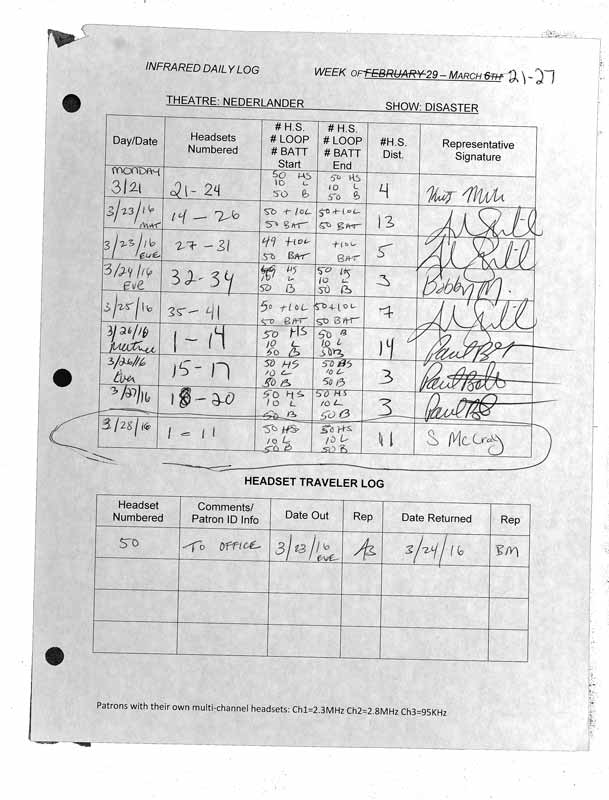 INFRARED DAILY LOG WEEK OF FEBRUARY 29 – MARCH 6TH 21-27
THEATRE: NEDERLANDER SHOW: DISASTER
Day/Date Headsets Numbered # H.S. # LOOP # BATT Start # H.S. # LOOP # BATT End #H.S. Dist. Representative Signature
MONDAY 3/21 21-24 50 HS 10 L 50 B 50 HS 10 L 50 B 4
3/23/16 MAT 14-26 50 +10L 50 BAT 50+10L 50 BAT 13
3/23/16 EVE 27-31 49 +10L 50 BAT +10L 50 BAT 5
3/24/16 EVE 32-34 HS 10 L 50 B 50 HS 10 L 50 B 3 Bobby M.
3/25/16 35-41 50 +10L 50 BAT 50+10L 50 BAT 7
3/26/16 Matinee 1-14 50 HS 10 L 50 B 50 B 10 L 50B 14
3/26/16 Even 15-17 50 HS 10 L 50 B 50 HS 10 L 50 B 3
3/27/16 18-20 50 HS 10 L 50 B 50 HS 10 L 50 B 3
3/28/16 1-11 50 HS 10 L 50 B 50 HS 10 L 50 B 11 S McCray
HEADSET TRAVELER LOG
Headset Numbered Comments/ Patron ID Info Date Out Rep Date Returned Rep
50 TO OFFICE 3/23/16 EVE AB 3/24/16 BM
Patrons with their own multi-channel headsets: Ch1=2.3MHz Ch2=2.8MHz Ch3=95KHz